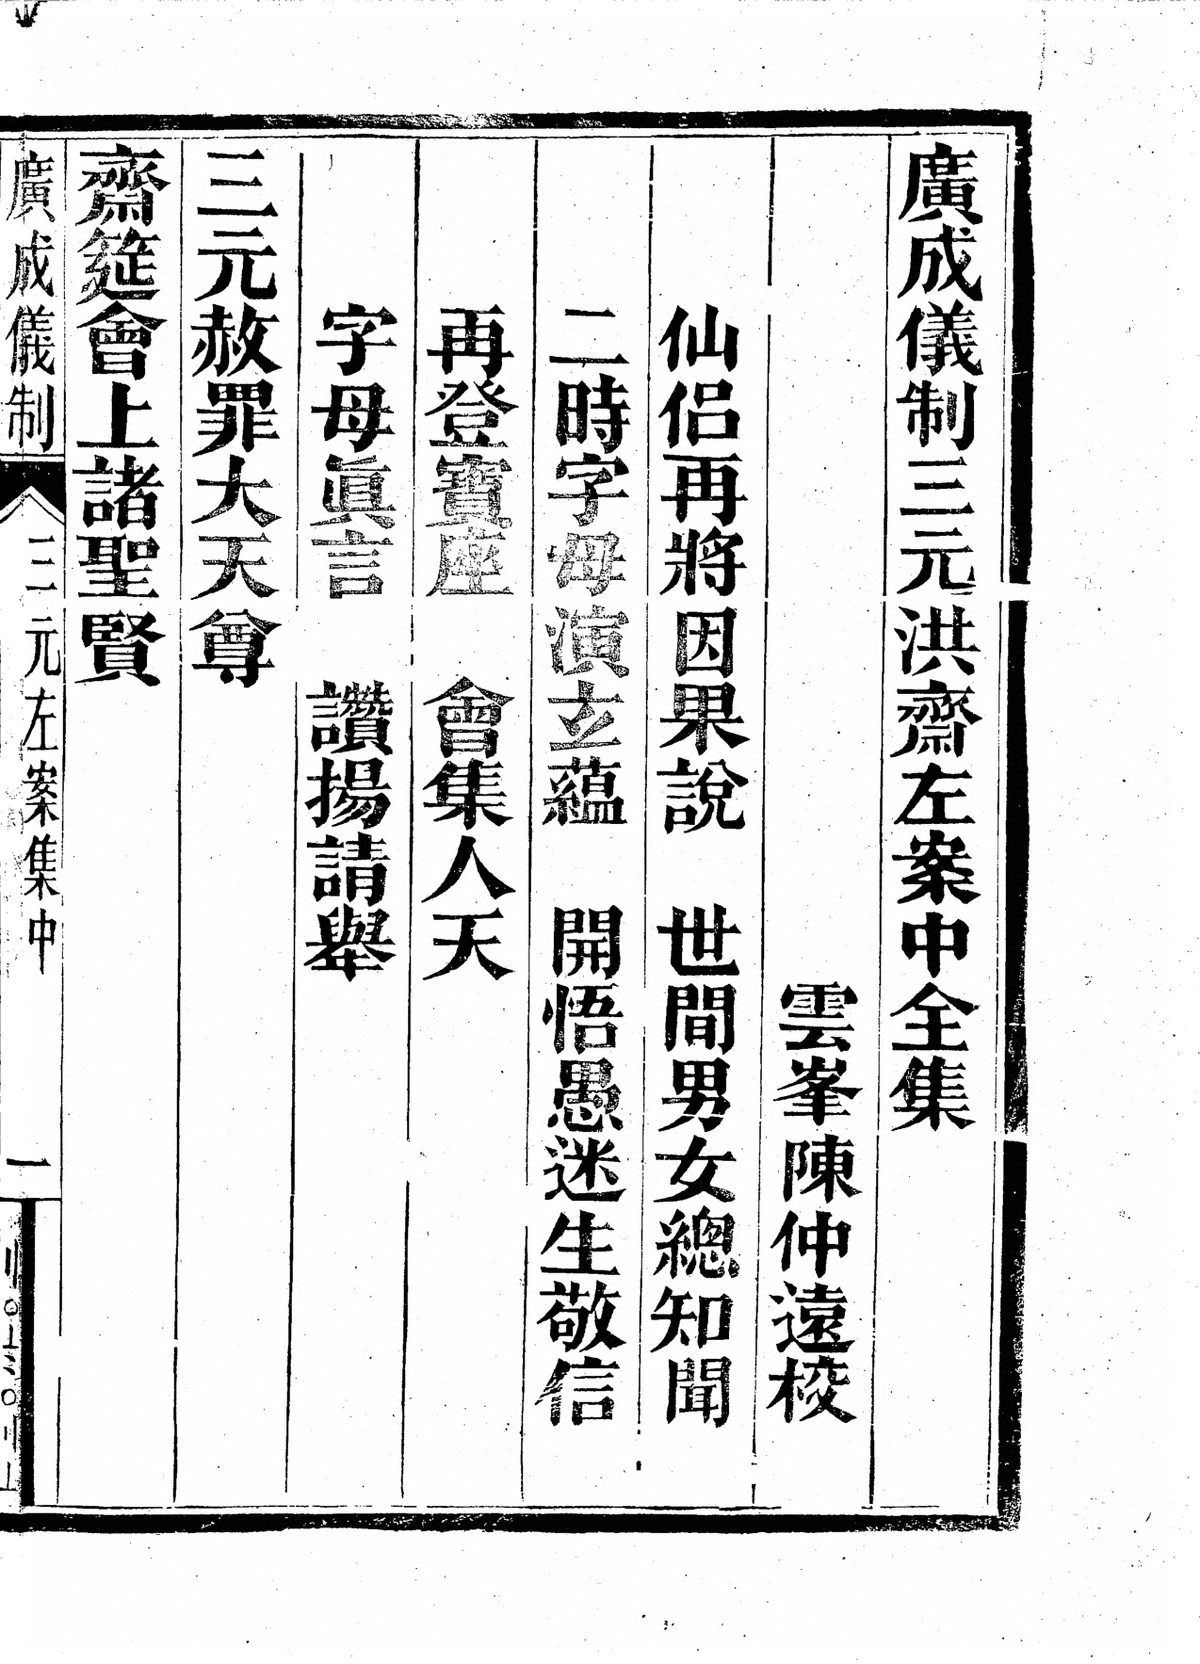 廣成儀制三元洪齋左案中全集
雲峯陳仲遠校
仙侣再將因果說　世間男女總知聞
二時字母演玄蘊　開悟愚迷生敬信
再登寶座　會集人天
字母眞言　讚揚請舉
三元赦罪大天尊
齋筵會上諸聖賢
廣成儀制　三元左案集中　一